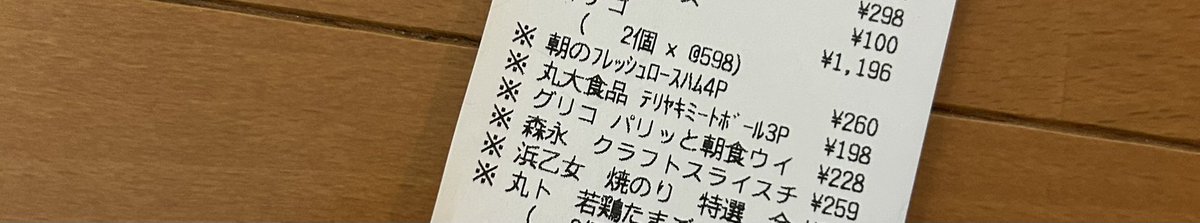 ¥298
¥100
( 2個 x @598) ¥1,196
※ 朝のフレッシュロースハム4P ¥260
※ 丸大食品 テリヤキミートボール3P ¥198
※ グリコ パリッと朝食ウィ ¥228
※ 森永 クラフトスライスチ ¥259
※ 浜乙女 焼のり 特選
※ 丸ト 若鶏たまご
(